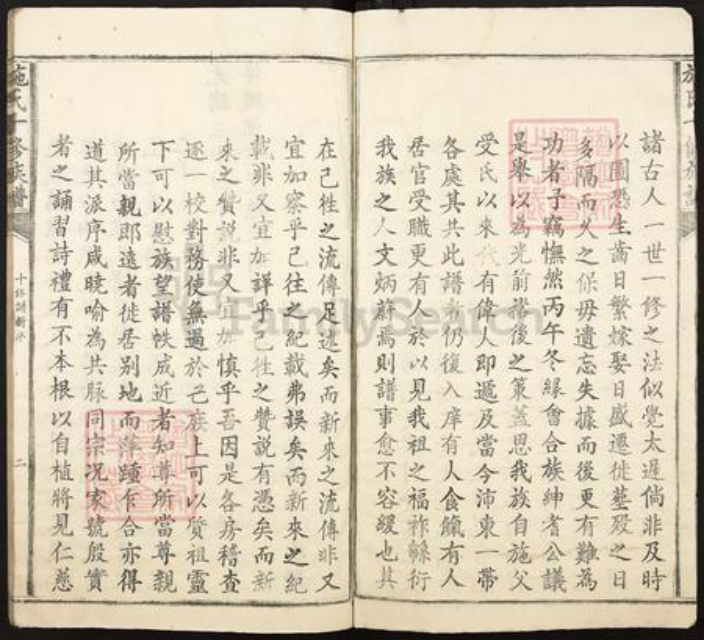 諸古人一世一修之法似覺太遲倘非及時
以圖恐生齒日繁嫁娶日盛遷徙塟殁之日
多隔而久之保毋遺忘失據而後更有難為
功者予竊憮然丙午冬緣會合族紳耆公議
是舉以為光前裕後之策蓋思我族自施父
受氏以來代有偉人即遞及當今沛東一帶
各處其共此譜者仍復入庠有人食餼有人
居官受職更有人於以見我祖之福祚緜衍
我族之人文炳蔚焉則譜事愈不容緩也其
在已徃之流傳足述矣而新來之流傳非又
宜加察乎已徃之紀載弗誤矣而新來之紀
載非又宜加詳乎已徃之贊説有憑矣而新
來之贊説非又宜加慎乎吾因是各房稽查
逐一校對務使無過於乙庶上可以質祖靈
下可以慰族望譜帙成近者知尊所當尊親
所當親即遠者徙居别地而萍踵乍合亦得
道其派序咸曉喻為共脈同宗况家號殷實
者之誦習詩禮有不本根以自植將見仁慈
施氏十修族譜
十修譜新序
二
FamilySearch